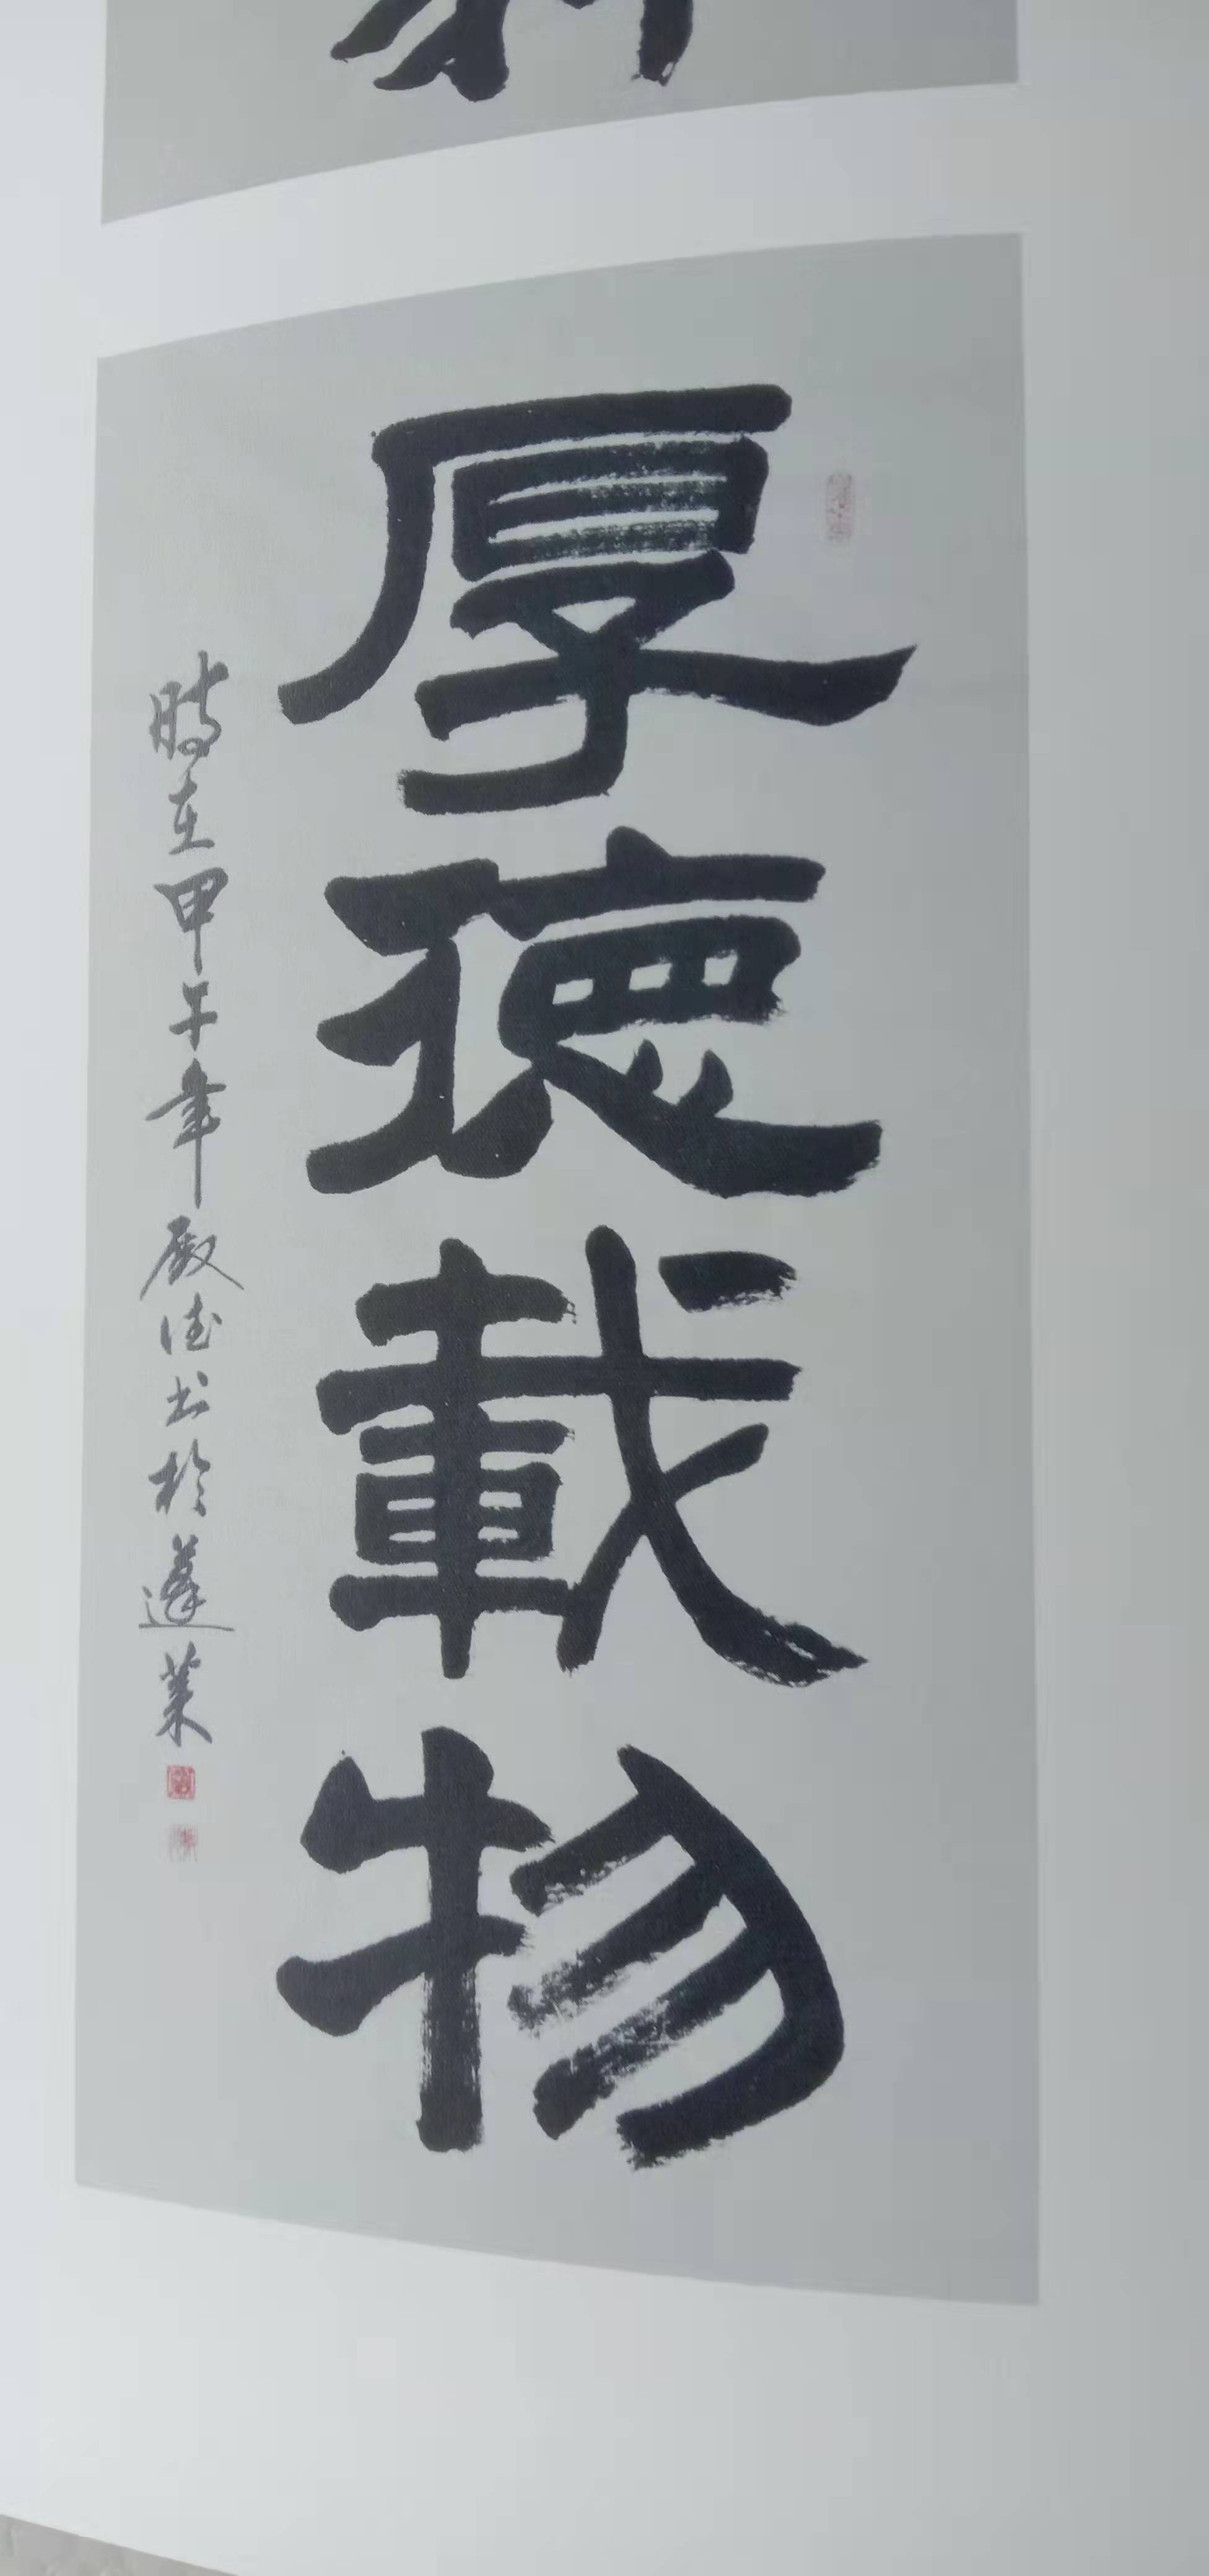 厚德載物
時在甲午年殿德书於蓬莱